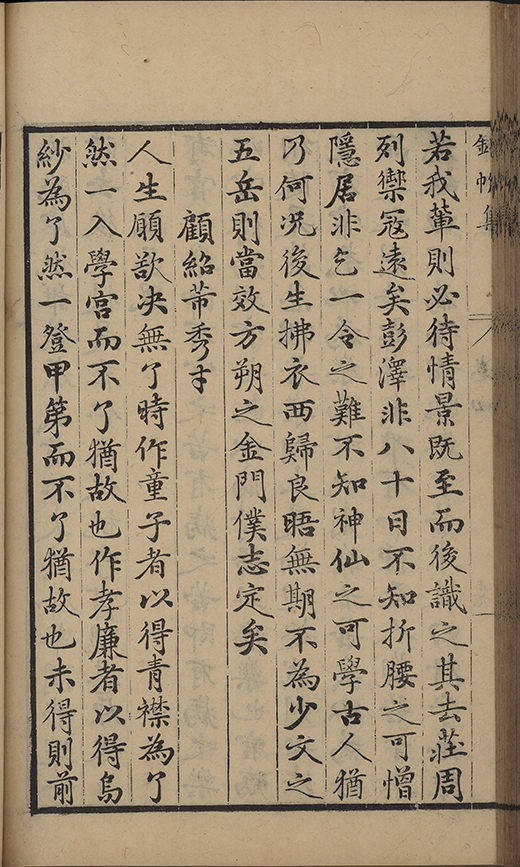 錦帆集
若我軰則必待情景既至而後識之其去莊周
列禦冦遠矣彭澤非八十日不知折腰之可憎
隱居非乞一令之難不知神仙之可學古人猶
尓何况後生拂衣西歸良晤無期不為少文之
五岳則當效方朔之金門僕志定矣
顧紹芾秀才
人生願欲决無了時作童子者以得青襟為了
然一入學宮而不了猶故也作孝廉者以得烏
紗為了然一登甲第而不了猶故也未得則前